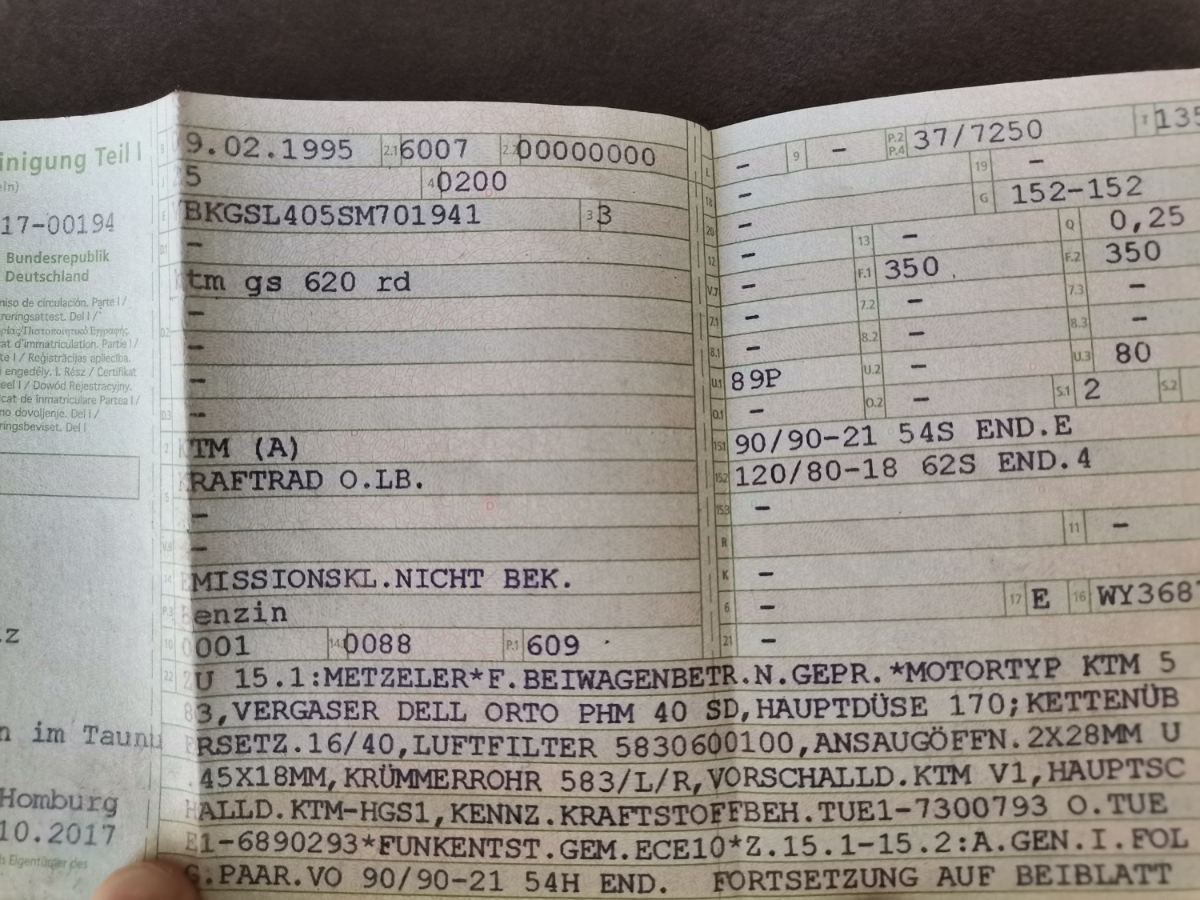 inigung Teil I
17-00194
Bundesrepublik
Deutschland
miso de circulación. Parte I /
reringsattest. Del I /
at d'immatriculation. Partie I /
te I / Reģistrācijas apliecība.
i engedély. I. Rész / Certifikat
eel I / Dowód Rejestracyjny.
icat de înmatriculare Partea I /
no dovoljenje. Del I /
ringsbeviset. Del I
z
n im Taunu
Homburg
10.2017
9.02.1995 2.1 6007 00000000
5 4 0200
BKGSL405SM701941 3 3
-
tm gs 620 rd
-
-
-
-
KTM (A)
KRAFTRAD O.LB.
-
-
EMISSIONSKL.NICHT BEK.
Benzin
0001 0088 P.1 609
L - 9 - P.2 P.4 37/7250 T 135
18 - 19 -
G 152-152
20 - Q 0,25
12 - 13 -
V.7 - F.1 350 F.2 350
7.1 - 7.2 - 7.3 -
8.1 - 8.2 - 8.3 -
U.1 89P U.2 - U.3 80
O.1 - O.2 - S.1 2 S.2
15.1 90/90-21 54S END.E
15.2 120/80-18 62S END.4
15.3 -
R 11 -
K -
6 - 17 E 16 WY3687
21 -
22 ZU 15.1:METZELER*F.BEIWAGENBETR.N.GEPR.*MOTORTYP KTM 5
83,VERGASER DELL ORTO PHM 40 SD,HAUPTDÜSE 170;KETTENÜB
ERSETZ.16/40,LUFTFILTER 5830600100,ANSAUGÖFFN.2X28MM U
.45X18MM,KRÜMMERROHR 583/L/R,VORSCHALLD.KTM V1,HAUPTSC
HALLD.KTM-HGS1,KENNZ.KRAFTSTOFFBEH.TUE1-7300793 O.TUE
E1-6890293*FUNKENTST.GEM.ECE10*Z.15.1-15.2:A.GEN.I.FOL
G.PAAR.VO 90/90-21 54H END. FORTSETZUNG AUF BEIBLATT